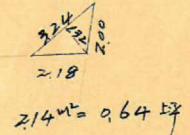 3.24
1.32
2.00
2.18
2.14m² = 0.64坪